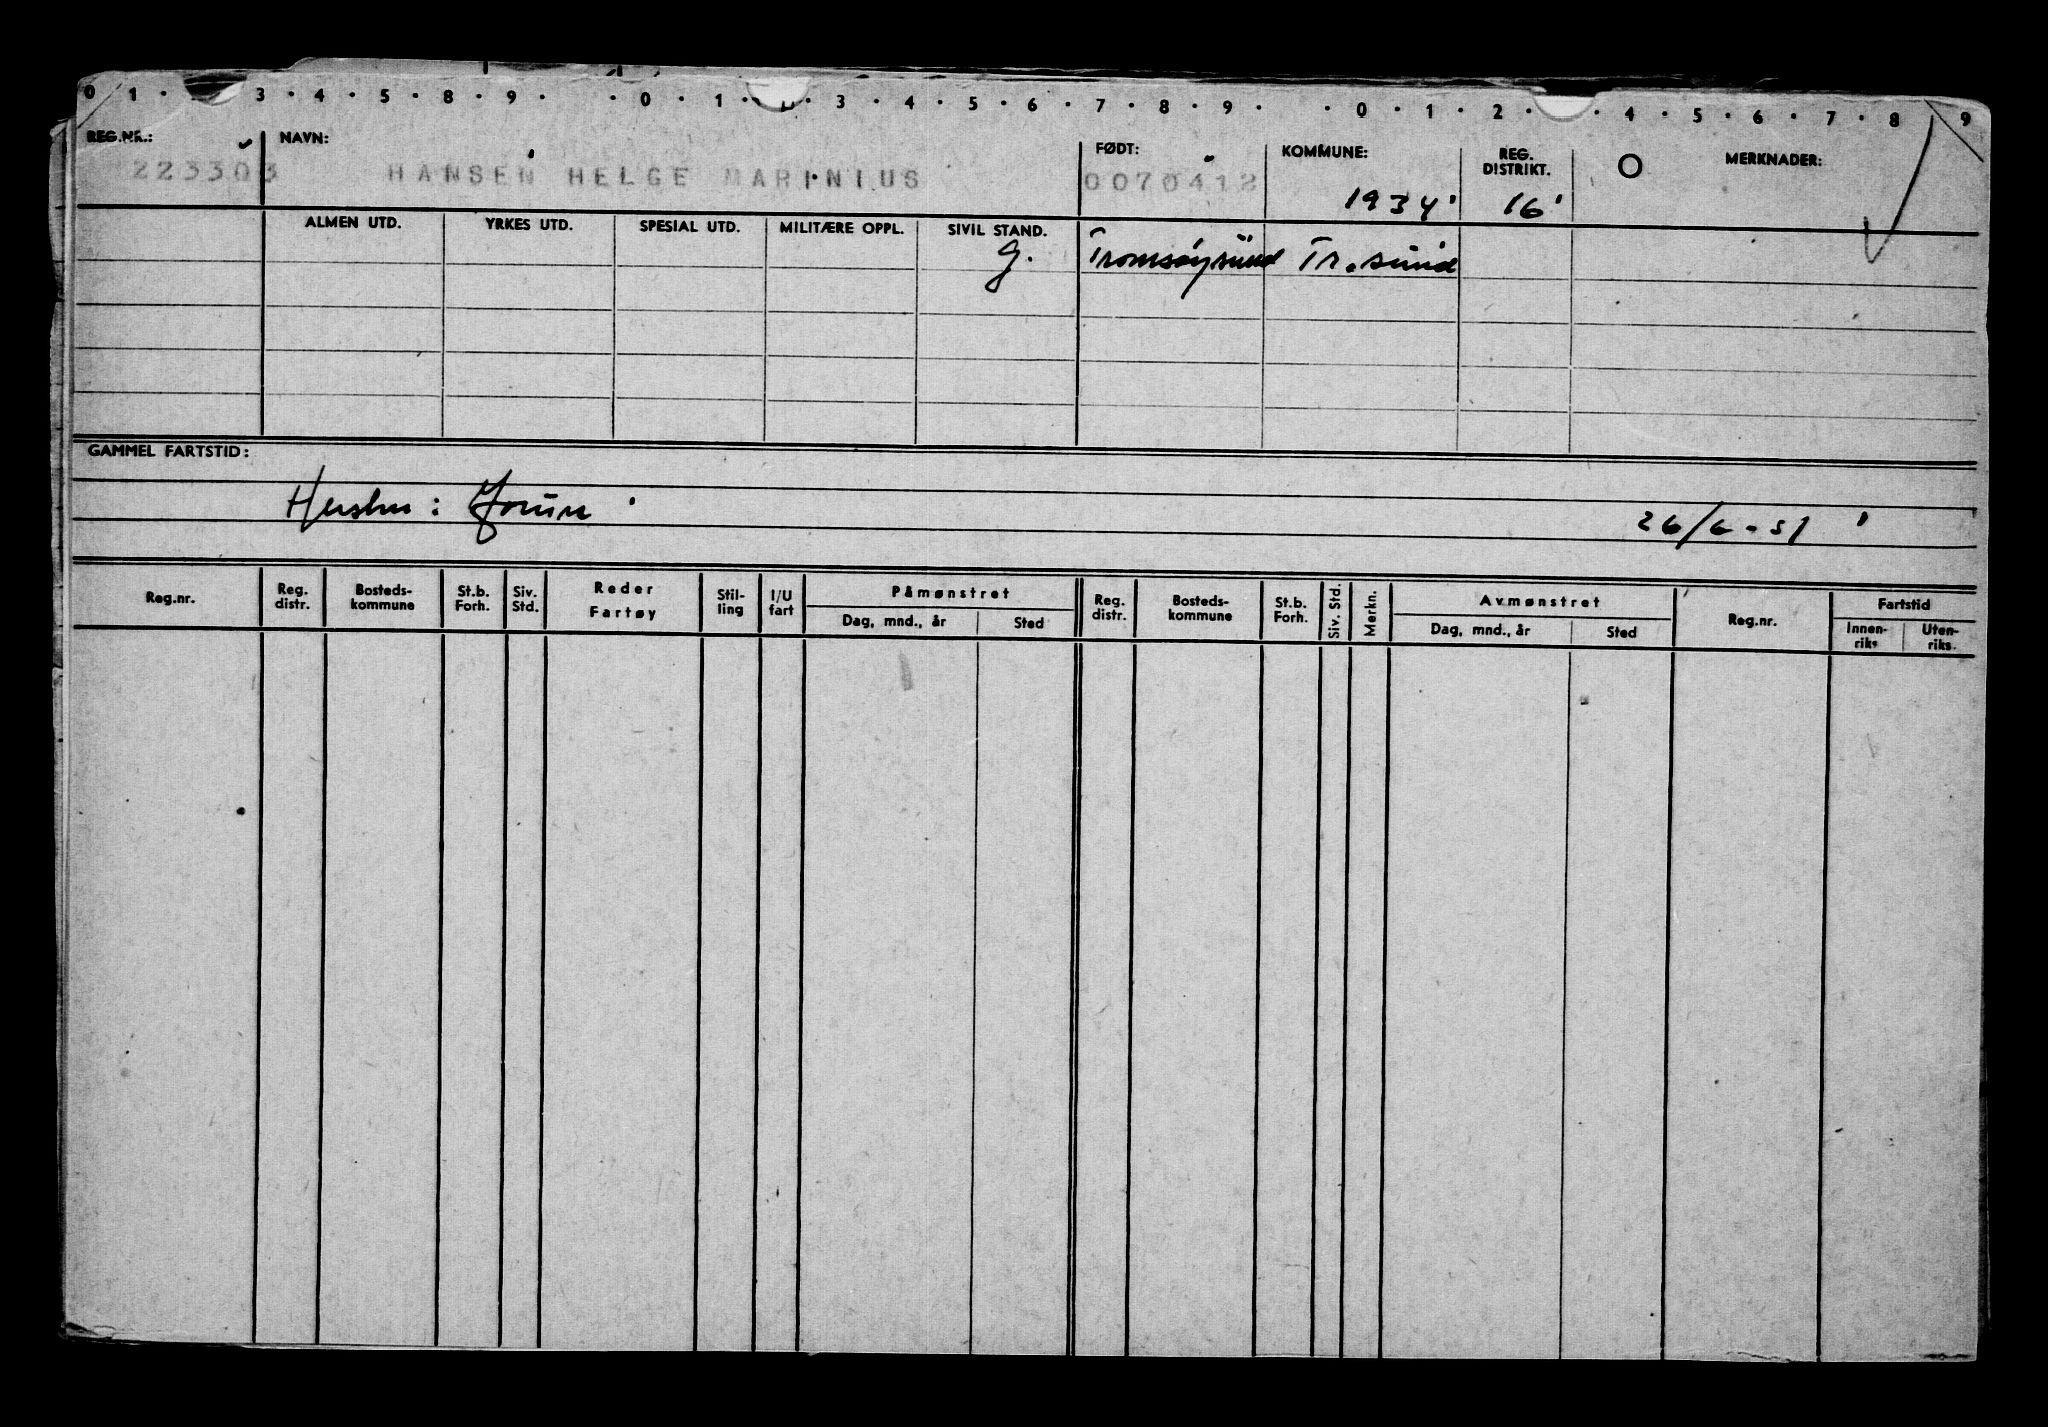 0 1 · 3 · 4 · 5 · 8 · 9 · · 0 · 1 · · 3 · 4 · 5 · 6 · 7 · 8 · 9 · · 0 · 1 · 2 · · 4 · 5 · 6 · 7 · 8 9
REG.NR.: NAVN: FØDT: KOMMUNE: REG. DISTRIKT. O MERKNADER:
223303 HANSEN HELGE MARINIUS 0070412 1934 16
ALMEN UTD. YRKES UTD. SPESIAL UTD. MILITÆRE OPPL. SIVIL STAND.
g. Tromsøysund Tr.sund
GAMMEL FARTSTID:
26/6-51
Reg.nr. Reg. distr. Bosteds-kommune St.b. Forh. Siv. Std. Reder Fartøy Stil-ling I/U fart Påmønstret Reg. distr. Bosteds-kommune St.b. Forh. Siv. Std. Merkn. Avmønstret Reg.nr. Fartstid
Dag, mnd., år Sted Dag, mnd., år Sted Innen-riks Uten-riks.